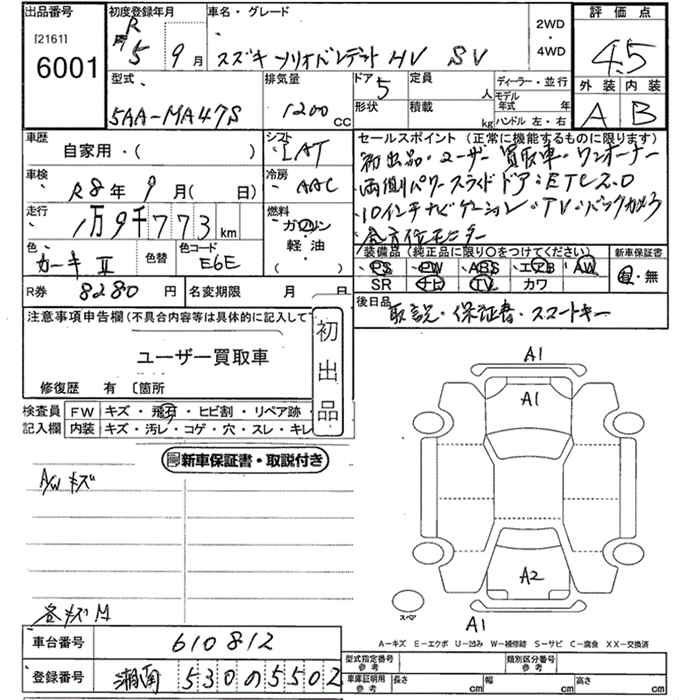 出品番号 初度登録年月 車名・グレード 2WD・4WD 評価点
[2161]
6001
R 5年 9月 スズキ ソリオバンディット HV SV 4.5
型式 排気量 ドア 5 定員 人 ディーラー・並行 外装 内装
5AA-MA47S 1200 CC 形状 積載 kg モデル年式 年 A B
ハンドル 左・右
車歴 シフト セールスポイント (正常に機能するものに限ります)
自家用・( ) IAT 初出品・ユーザー買取車・ワンオーナー
車検 冷房 両側パワースライドドア・ETC2.0
R8年 9月( 日) AAC 10インチナビゲーション・TV・バックカメラ
走行 燃料 全方位モニター
1万9千773km ガソリン
軽油
( )
色 色替 色コード 装備品 (純正品に限り○をつけてください) 新車保証書
E6E PS PW ABS エアB AW 有・無
SR ナビ TV カワ
R券 8280 円 名変期限 月 日 後日品
取説・保証書・スマートキー
注意事項申告欄(不具合内容等は具体的に記入して下
初出品
ユーザー買取車
修復歴 有 〔箇所
検査員記入欄 FW キズ・飛石・ヒビ割・リペア跡・
内装 キズ・汚レ・コゲ・穴・スレ・キレ
新車保証書・取説付き
A/W キズ
各キズ M
A1
A1
A2
A1
スペア
A-キズ E-エクボ U-凹み W-補修跡 S-サビ C-腐食 XX-交換済
車台番号 610812
型式指定番号 参考 類別区分番号 参考
登録番号 湘南 530 の 5502
車庫証明用 参考 長さ cm 幅 cm 高さ cm